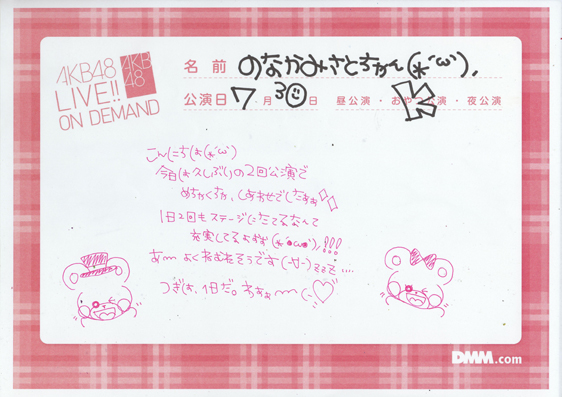 AKB48
LIVE!!
ON DEMAND
AKB
48
名前 のなかみさとちゃん(*´ω`),
公演日 7 月 30 日 昼公演・おやつ公演・夜公演
こんにちは(*´ω`)
今日は久しぶりの2回公演で
めちゃくちゃ、しあわせでしたぁぁ
1日2回もステージにたてるなんて
充実してるよぉぉ(*●ω●)/!!!
あ〜よくねむれそうです(-ω-)zzz....
つぎは、1日だ。わあぁ〜〜(-♡
DMM.com